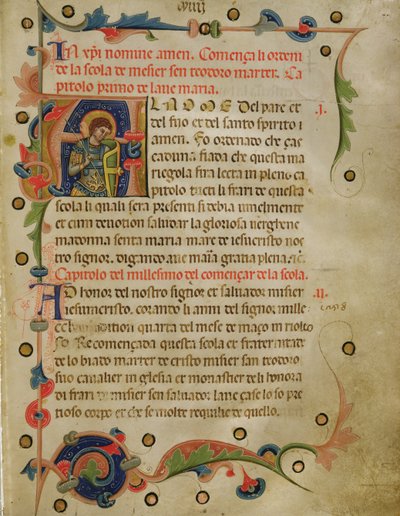 viiij
In xp̄i nomine amen. Comença li ordeni
de la scola de misier sen teodoro marter. Ca
pitolo primo de laue maria.
AL NOME Del pare et .j.
del fiio et del santo spirito
amen. Fo ordenato che cas
caduna fiada che questa ma
riegola sira leeta in pleno ca
pitolo tuti li frari de questa
scola li quali sera presenti si debia umelmente
et cum deuotion saludar la gloriosa uerghene
madonna senta maria mare de iesu cristo nos
tro signor. digando aue maria gratia plena.
Capitolo del millesimo del començar de la scola.
AD honor del nostro signor et saluador misier .ij.
iesum cristo. corando li anni del signor mille
quarta del mese de março in riolto
So Recomençada questa scola et fraternitade
de lo biado marter de cristo misier san teodoro
suo caualier in glesia et monastier deli honora
di frari de misier sen saluador. la ne çase lo so pre
tioso corpo et che se molte requilie de quello.